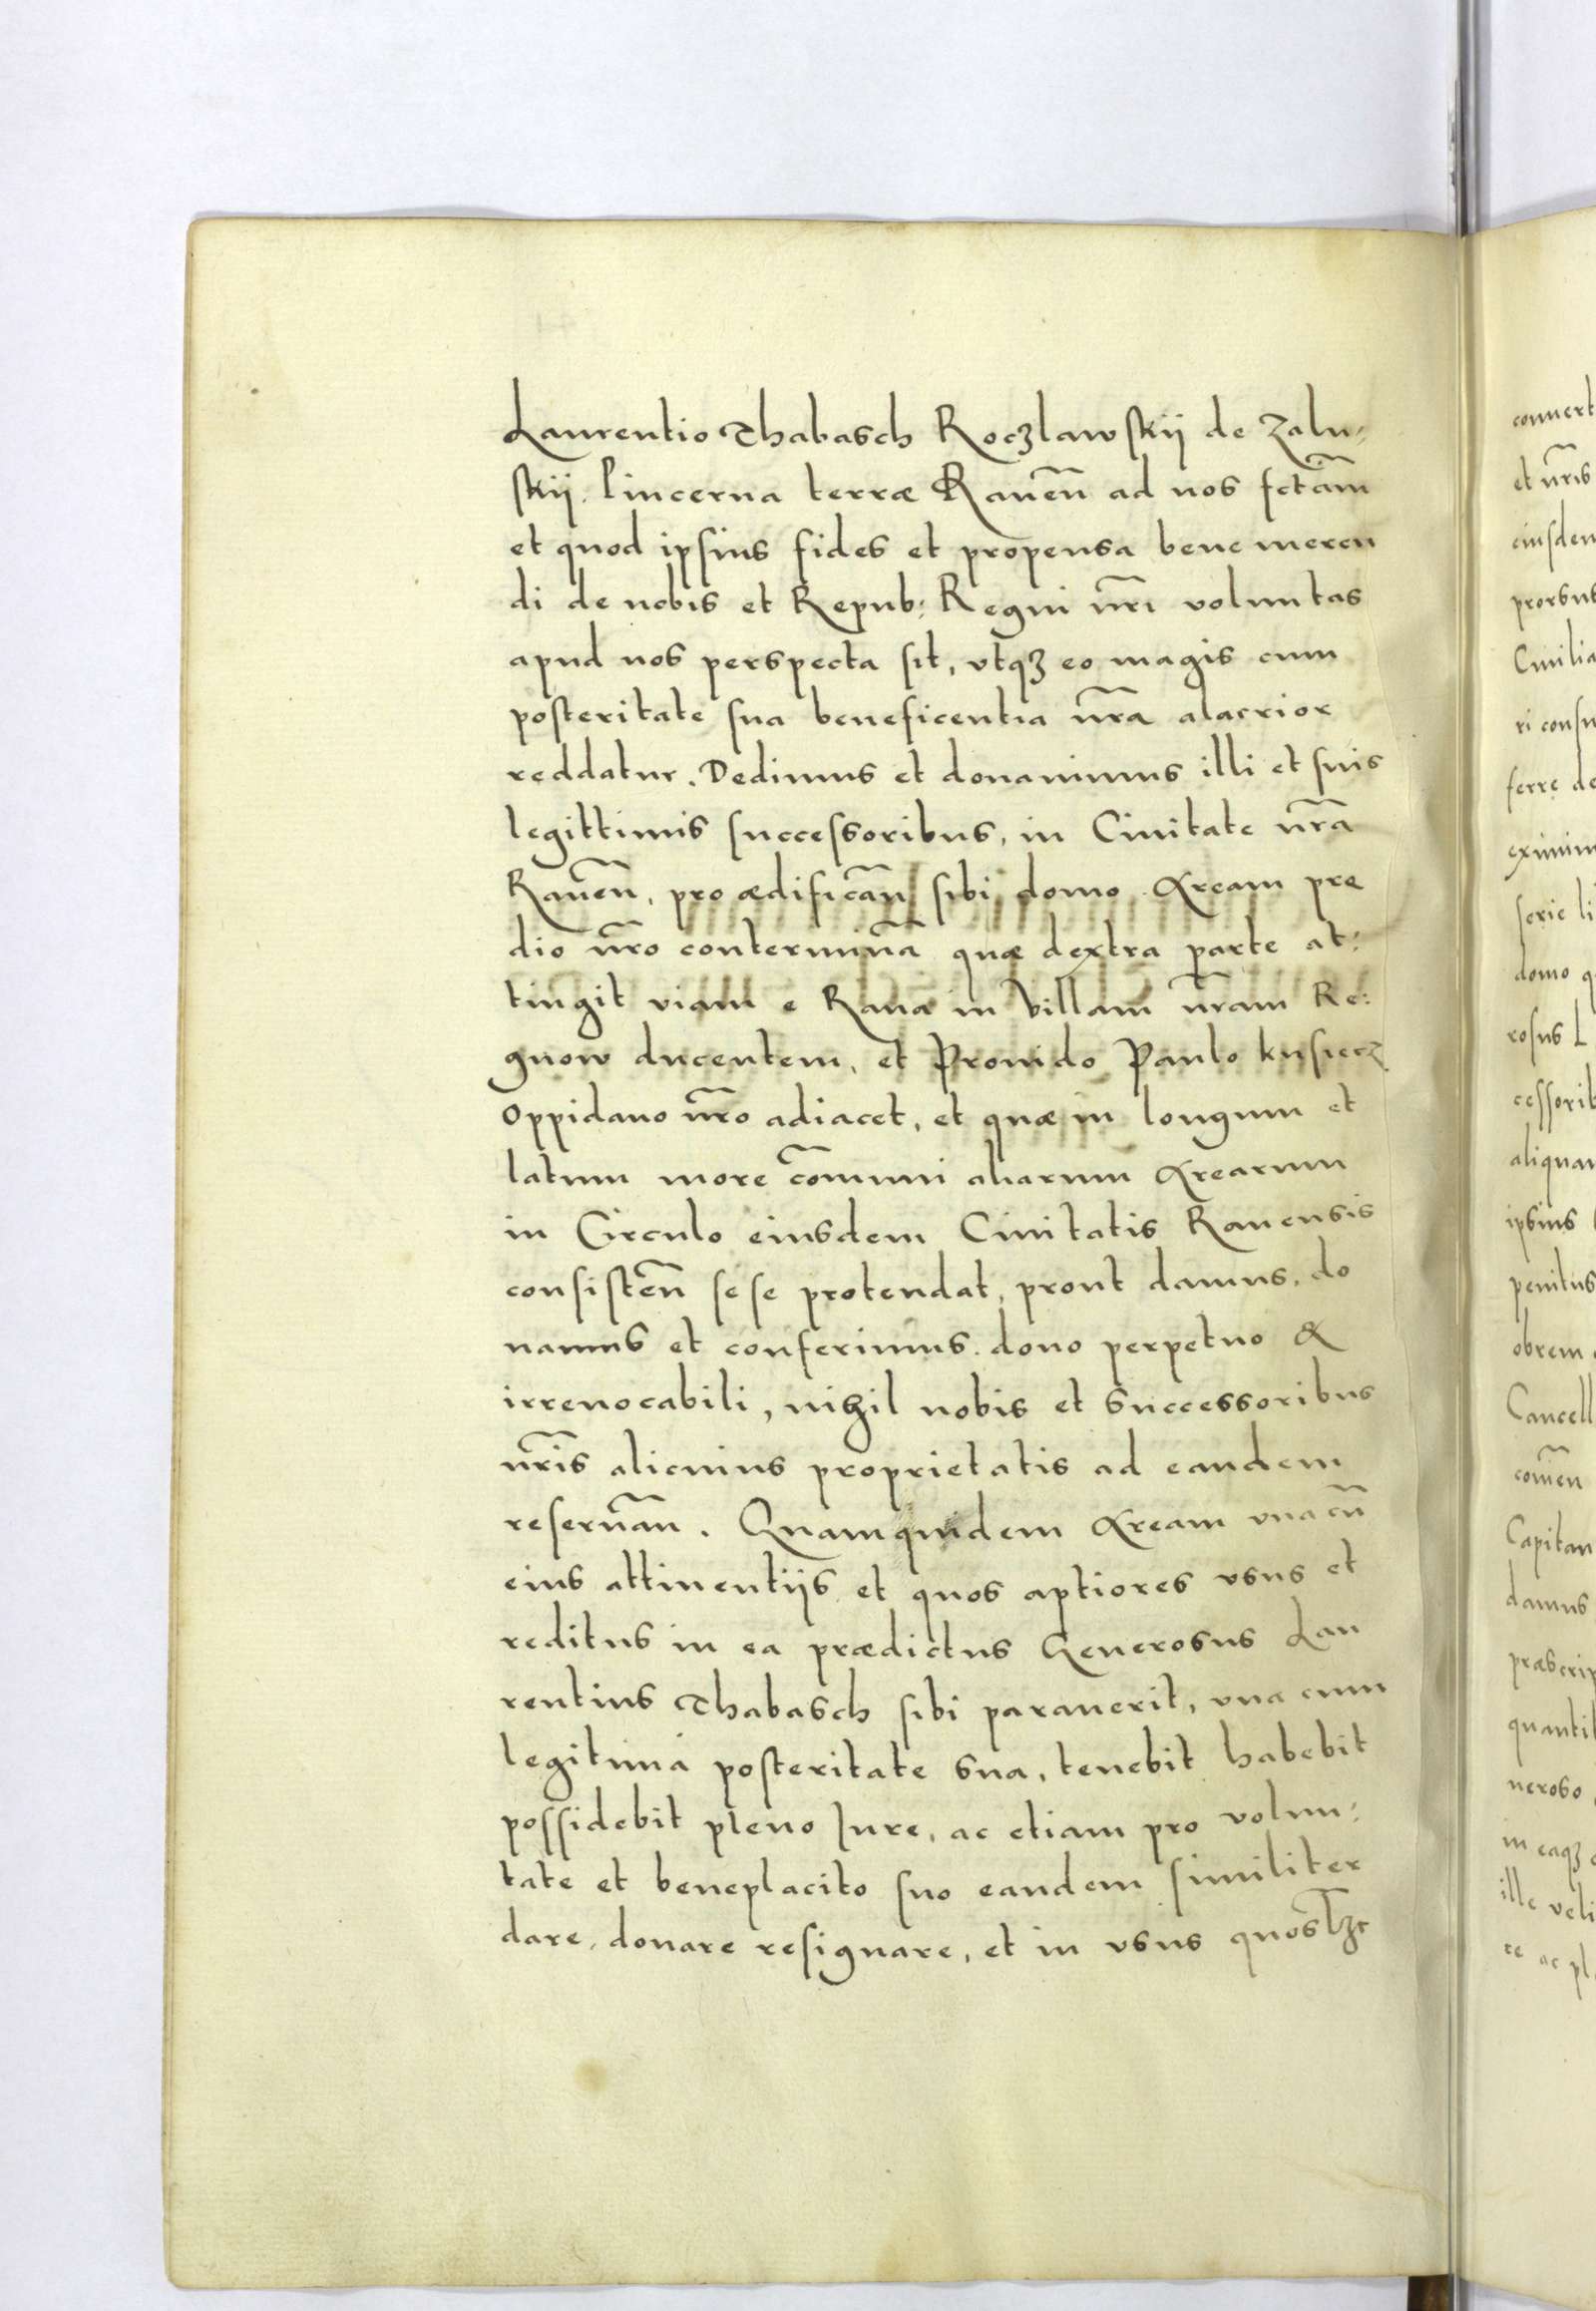 Laurentio Thabasch Roczlawskij de Zalu-
skij Pincerna terræ Raueñ ad nos fctãm
et quod ipsius fides et propensa bene meren
di de nobis et Repub: Regni nr̃i voluntas
apud nos perspecta sit, vtqꝫ eo magis cum
posteritate sua beneficentia nr̃a alacrior
reddatur. Dedimus et donauimus illi et suis
legittimis successoribus, in Ciuitate nr̃a
Raueñ, pro ædificãn sibi domo Aream præ
dio nr̃o contermiña quæ dextra parte at:
tingit viam e Raua in villam nr̃am Re:
gnow ducentem, et Prouido Paulo kusiecz
Oppidano nr̃o adiacet, et quæ in longum et
latum more cõmuni aliarum Arearum
in Circulo eiusdem Ciuitatis Rauensis
consisteñ sese protendat, prout damus, do
namus et conferimus dono perpetuo &
irreuocabili, nihil nobis et successoribus
nr̃is alicuius proprietatis ad eandem
reseruãn. Quamquidem Aream vna cũ
eius attinentijs et quos aptiores vsus et
reditus in ea prædictus Generosus Lau
rentius Thabasch sibi parauerit, vna cum
legitima posteritate sua, tenebit habebit
possidebit pleno Iure, ac etiam pro volun:
tate et beneplacito suo eandem similiter
dare, donare resignare, et in vsus quoslꝫt
conuert
et nr̃is
eiusdem
prorsus
Ciuilia
ri consu
ferre de
eximim
serie li
domo q
rosus L
cessorib
aliquam
ipsius
penitus
obrem
Cancell
comeñ
Capitan
damus
præscrip
quantit
neroso
in eaqꝫ
ille veli
te ac pl